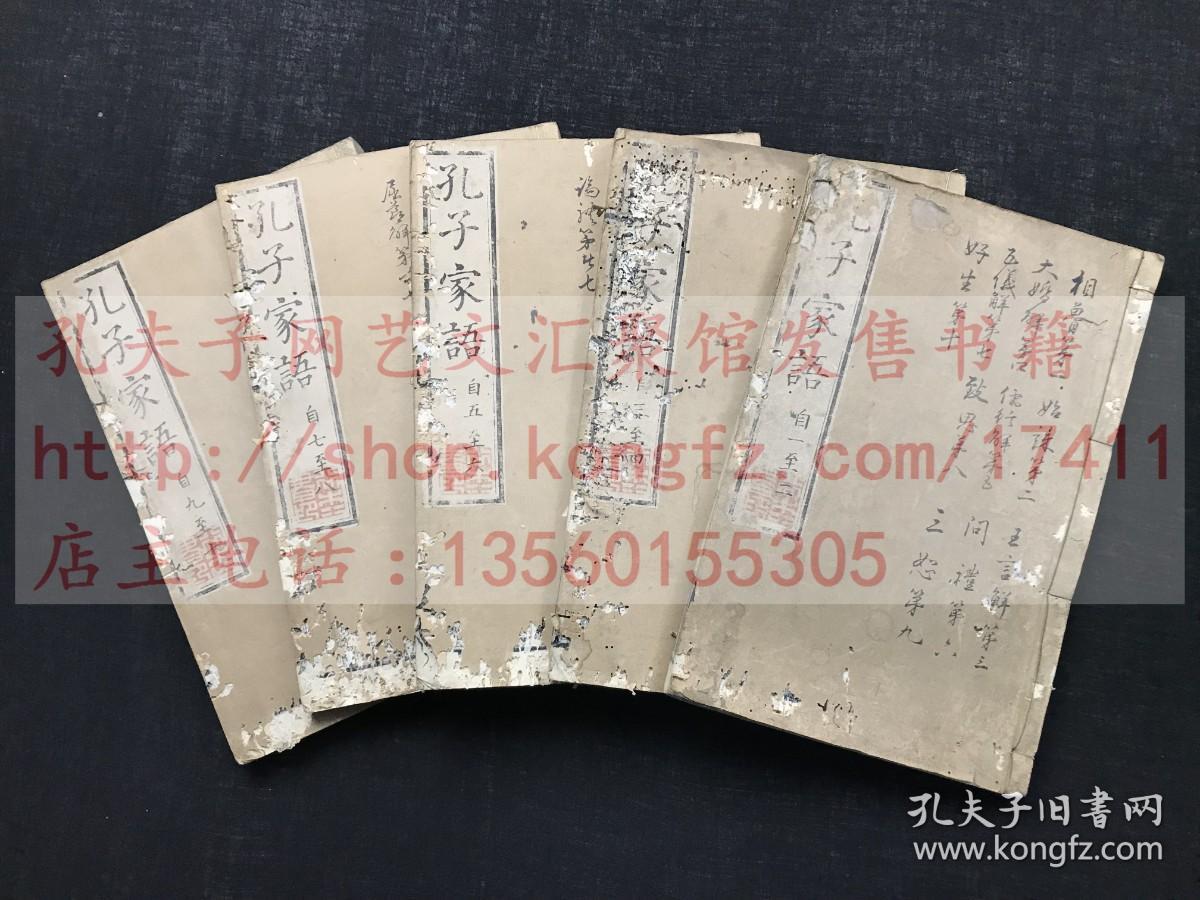 孔子家語
自九至
孔子家語
自七至八
孔子家語
自五至六
自三至四
子家語
自一至二
相魯第一·始誅第二
王言解第三
大婚解第四
儒行解第五
問禮第六
五儀解第七
致思第八
三恕第九
好生第十
孔夫子网艺文汇聚馆发售书籍
http://shop.kongfz.com/17411
店主电话：13560155305
孔夫子旧書网
www.kongfz.com